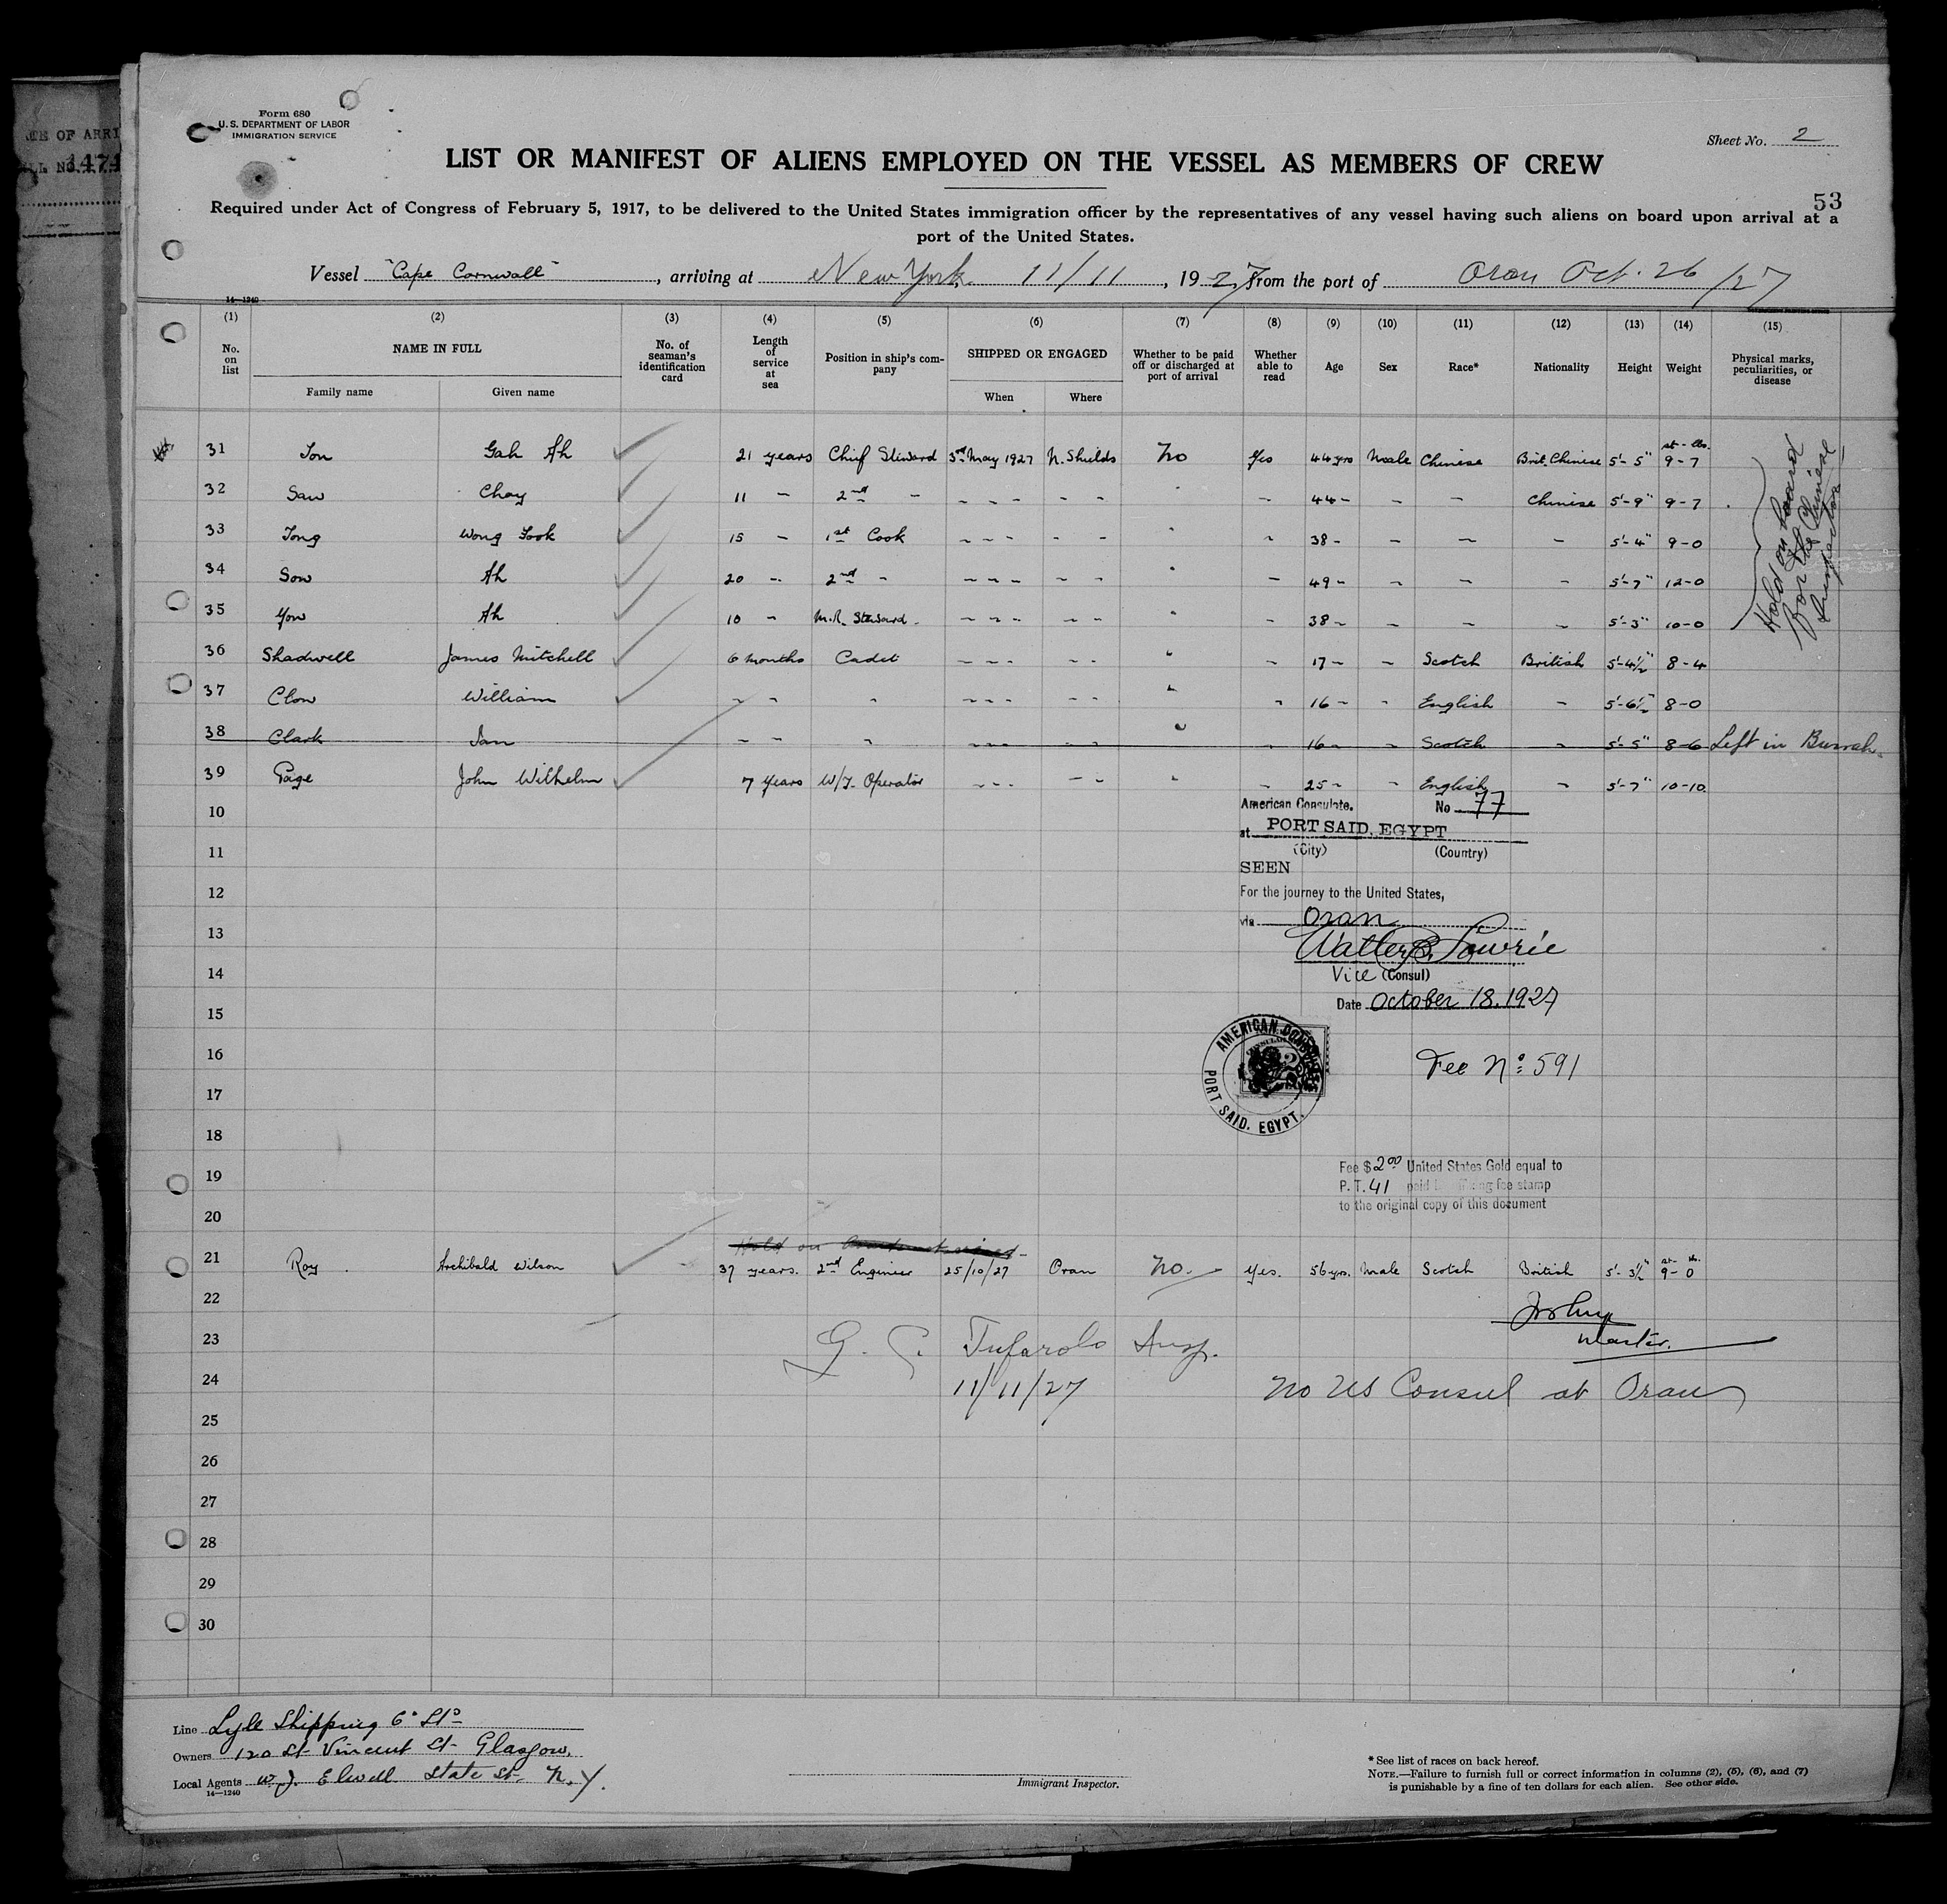 TE OF ARRI
LL NO. 1474
Form 680
U. S. DEPARTMENT OF LABOR
IMMIGRATION SERVICE
Sheet No. 2
LIST OR MANIFEST OF ALIENS EMPLOYED ON THE VESSEL AS MEMBERS OF CREW
53
Required under Act of Congress of February 5, 1917, to be delivered to the United States immigration officer by the representatives of any vessel having such aliens on board upon arrival at a
port of the United States.
Vessel "Cape Cornwall", arriving at New York 11/11, 1927, from the port of Oran Oct. 26/27
14—1240
(1) (2) (3) (4) (5) (6) (7) (8) (9) (10) (11) (12) (13) (14) (15)
No. on list
NAME IN FULL
Family name Given name
No. of seaman's identification card
Length of service at sea
Position in ship's company
SHIPPED OR ENGAGED
When Where
Whether to be paid off or discharged at port of arrival
Whether able to read
Age Sex Race* Nationality Height Weight
Physical marks, peculiarities, or disease
st - lbs.
31 Ton Gah Ah 21 years Chief Steward 3rd May 1927 N. Shields No Yes 44 yrs Male Chinese Brit. Chinese 5'-5" 9-7
32 Saw Choy 11 - 2nd - - - - - - " - 44 - - - Chinese 5'-9" 9-7
33 Tong Wong Fook 15 - 1st Cook - - - - - " - 38 - - - - 5'-4" 9-0
34 Sow Ah 20 - 2nd - - - - - - " - 49 - - - - 5'-7" 12-0
35 Yow Ah 10 - M.R. Steward - - - - - " - 38 - - - - 5'-3" 10-0
Hold on board
For the Chinese
Inspector
36 Shadwell James Mitchell 6 months Cadet - - - - - " - 17 - - Scotch British 5'-4½" 8-4
37 Clow William - - " - - - - - " - 16 - - English - 5'-6½" 8-0
38 Clark Ian - - " - - - - - " - 16 - - Scotch - 5'-5" 8-6 Left in Burrah.
39 Page John Wilhelm 7 years W/T. Operator - - - - - " - 25 - - English - 5'-7" 10-10
10
11
12
13
14
15
16
17
18
19
20
American Consulate. No 77
at PORT SAID, EGYPT
(City) (Country)
SEEN
For the journey to the United States,
via Oran
Vice (Consul)
Date October 18, 1927
AMERICAN CONSULATE
PORT SAID, EGYPT.
Fee No. 591
Fee $ 2.00 United States Gold equal to
P. T. 41 paid fee stamp
to the original copy of this document
Hold on
21 Roy Archibald Wilson 37 years. 2nd Engineer 25/10/27 Oran No. Yes. 56 yrs. Male Scotch British 5'-3½" st. lb. 9-0
22
23
24
25
26
27
28
29
30
Master.
G. C. Tufarolo Insp.
11/11/27
No US Consul at Oran
Line Lyle Shipping Co Ltd
Owners 120 St Vincent St Glasgow.
Local Agents W. J. Elwell State St. N.Y.
14—1240
Immigrant Inspector.
* See list of races on back hereof.
NOTE.—Failure to furnish full or correct information in columns (2), (5), (6), and (7)
is punishable by a fine of ten dollars for each alien. See other side.